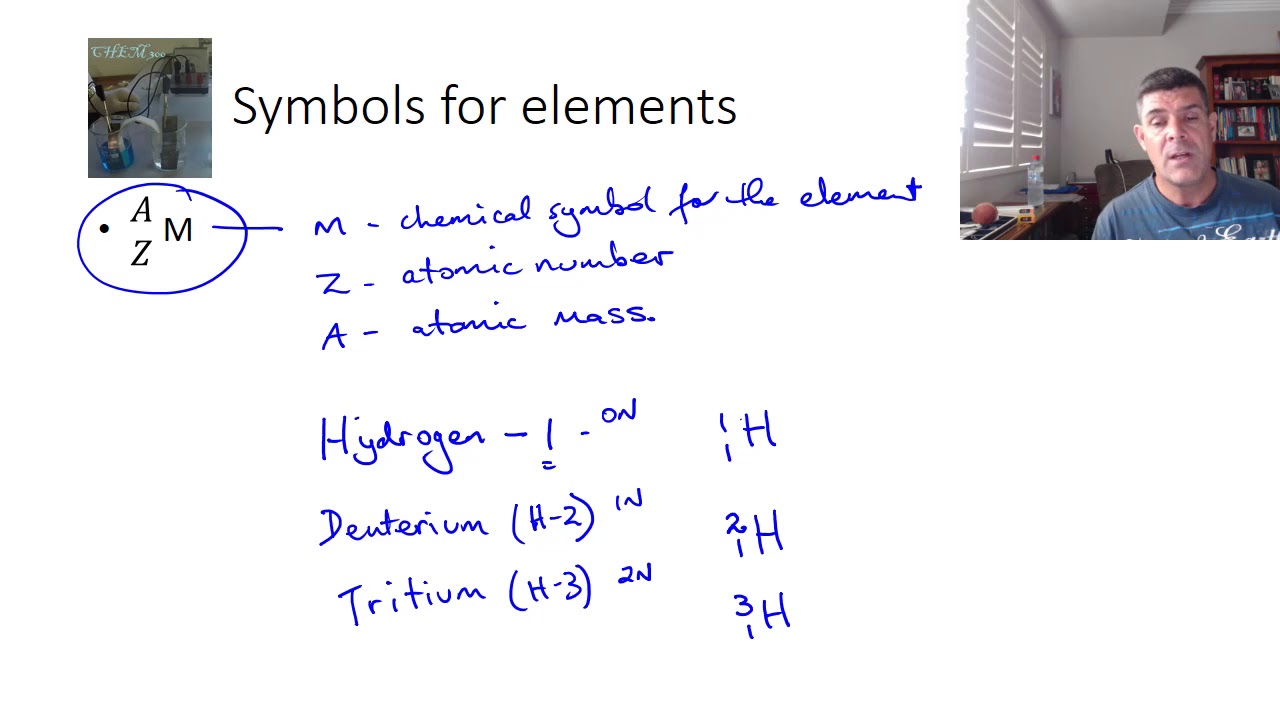 CHEM300
Symbols for elements
• A
Z M
M - chemical symbol for the element
Z - atomic number
A - atomic mass.
Hydrogen - 1 - 0N ¹₁H
Deuterium (H-2) 1N ²₁H
Tritium (H-3) 2N ³₁H